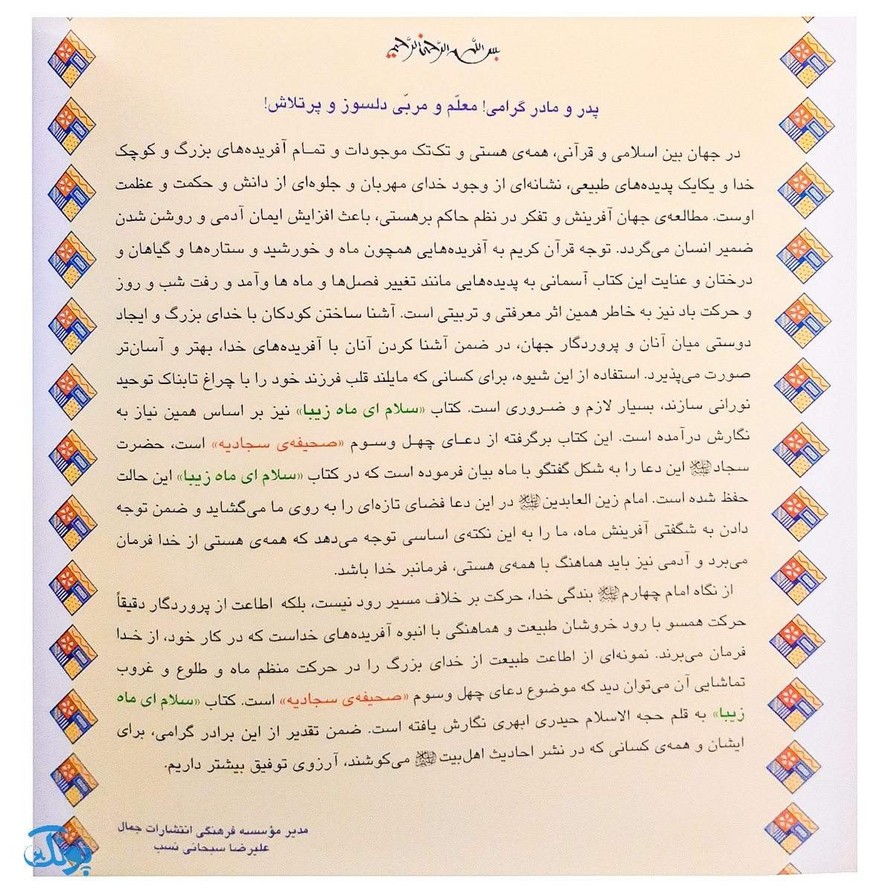 بسم الله الرحمن الرحیم
پدر و مادر گرامی! معلّم و مربّی دلسوز و پرتلاش!
در جهان بین اسلامی و قرآنی، همه‌ی هستی و تک‌تک موجودات و تمـام آفریده‌های بزرگ و کوچک
خدا و یکایک پدیده‌های طبیعی، نشانه‌ای از وجود خدای مهربان و جلوه‌ای از دانش و حکمت و عظمت
اوست. مطالعه‌ی جهان آفرینش و تفکر در نظم حاکم برهستی، باعث افزایش ایمان آدمی و روشن شدن
ضمیر انسان می‌گردد. توجه قرآن کریم به آفریده‌هایی همچون ماه و خورشید و ستاره‌ها و گیاهان و
درختان و عنایت این کتاب آسمانی به پدیده‌هایی مانند تغییر فصل‌ها و ماه ها وآمد و رفت شب و روز
و حرکت باد نیز به خاطر همین اثر معرفتی و تربیتی است. آشنا ساختن کودکان با خدای بزرگ و ایجاد
دوستی میان آنان و پروردگار جهان، در ضمن آشنا کردن آنان با آفریده‌های خدا، بهتر و آسان‌تر
صورت می‌پذیرد. استفاده از این شیوه، برای کسانی که مایلند قلب فرزند خود را با چراغ تابناک توحید
نورانی سازند، بسیار لازم و ضـروری است. کتاب «سلام ای ماه زیبا» نیز بر اساس همین نیاز به
نگارش درآمده است. این کتاب برگرفته از دعـای چهـل وسـوم «صحیفه‌ی سجادیه» است، حضرت
سجاد علیه‌السلام این دعا را به شکل گفتگو با ماه بیان فرموده است که در کتاب «سلام ای ماه زیبا» این حالت
حفظ شده است. امام زین العابدین علیه‌السلام در این دعا فضای تازه‌ای را به روی ما می‌گشاید و ضمن توجه
دادن به شگفتی آفرینش ماه، ما را به این نکته‌ی اساسی توجه می‌دهد که همه‌ی هستی از خدا فرمان
می‌برد و آدمی نیز باید هماهنگ با همه‌ی هستی، فرمانبر خدا باشد.
از نگاه امام چهارم علیه‌السلام بندگی خدا، حرکت بر خلاف مسیر رود نیست، بلکه اطاعت از پروردگار دقیقاً
حرکت همسو با رود خروشان طبیعت و هماهنگی با انبوه آفریده‌های خداست که در کار خود، از خـدا
فرمان می‌برند. نمونه‌ای از اطاعت طبیعت از خدای بزرگ را در حرکت منظم ماه و طلوع و غروب
تماشایی آن می‌توان دید که موضوع دعای چهل وسوم «صحیفه‌ی سجادیه» است. کتاب «سلام ای ماه
زیبا» به قلم حجه الاسلام حیدری ابهری نگارش یافته است. ضمن تقدیر از این برادر گرامی، برای
ایشان و همه‌ی کسانی که در نشر احادیث اهل‌بیت علیهم‌السلام می‌کوشند، آرزوی توفیق بیشتر داریم.
مدیر مؤسسه فرهنگی انتشارات جمال
علیرضا سبحانی نسب
پونک